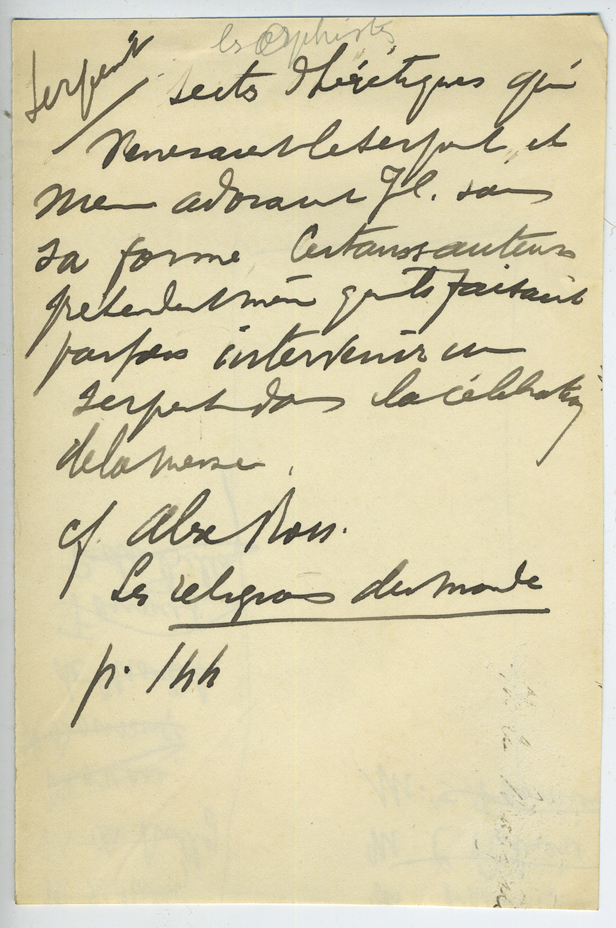 les Ophistes
Serpent
Secte d'hérétiques qui
vénéraient le serpent, et
même adoraient J.C. sous
sa forme. Certains auteurs
prétendent même qu'ils faisaient
parfois intervenir un
serpent dans la célébration
de la messe.
cf. Alex Ross.
Les religions du monde
p. 144